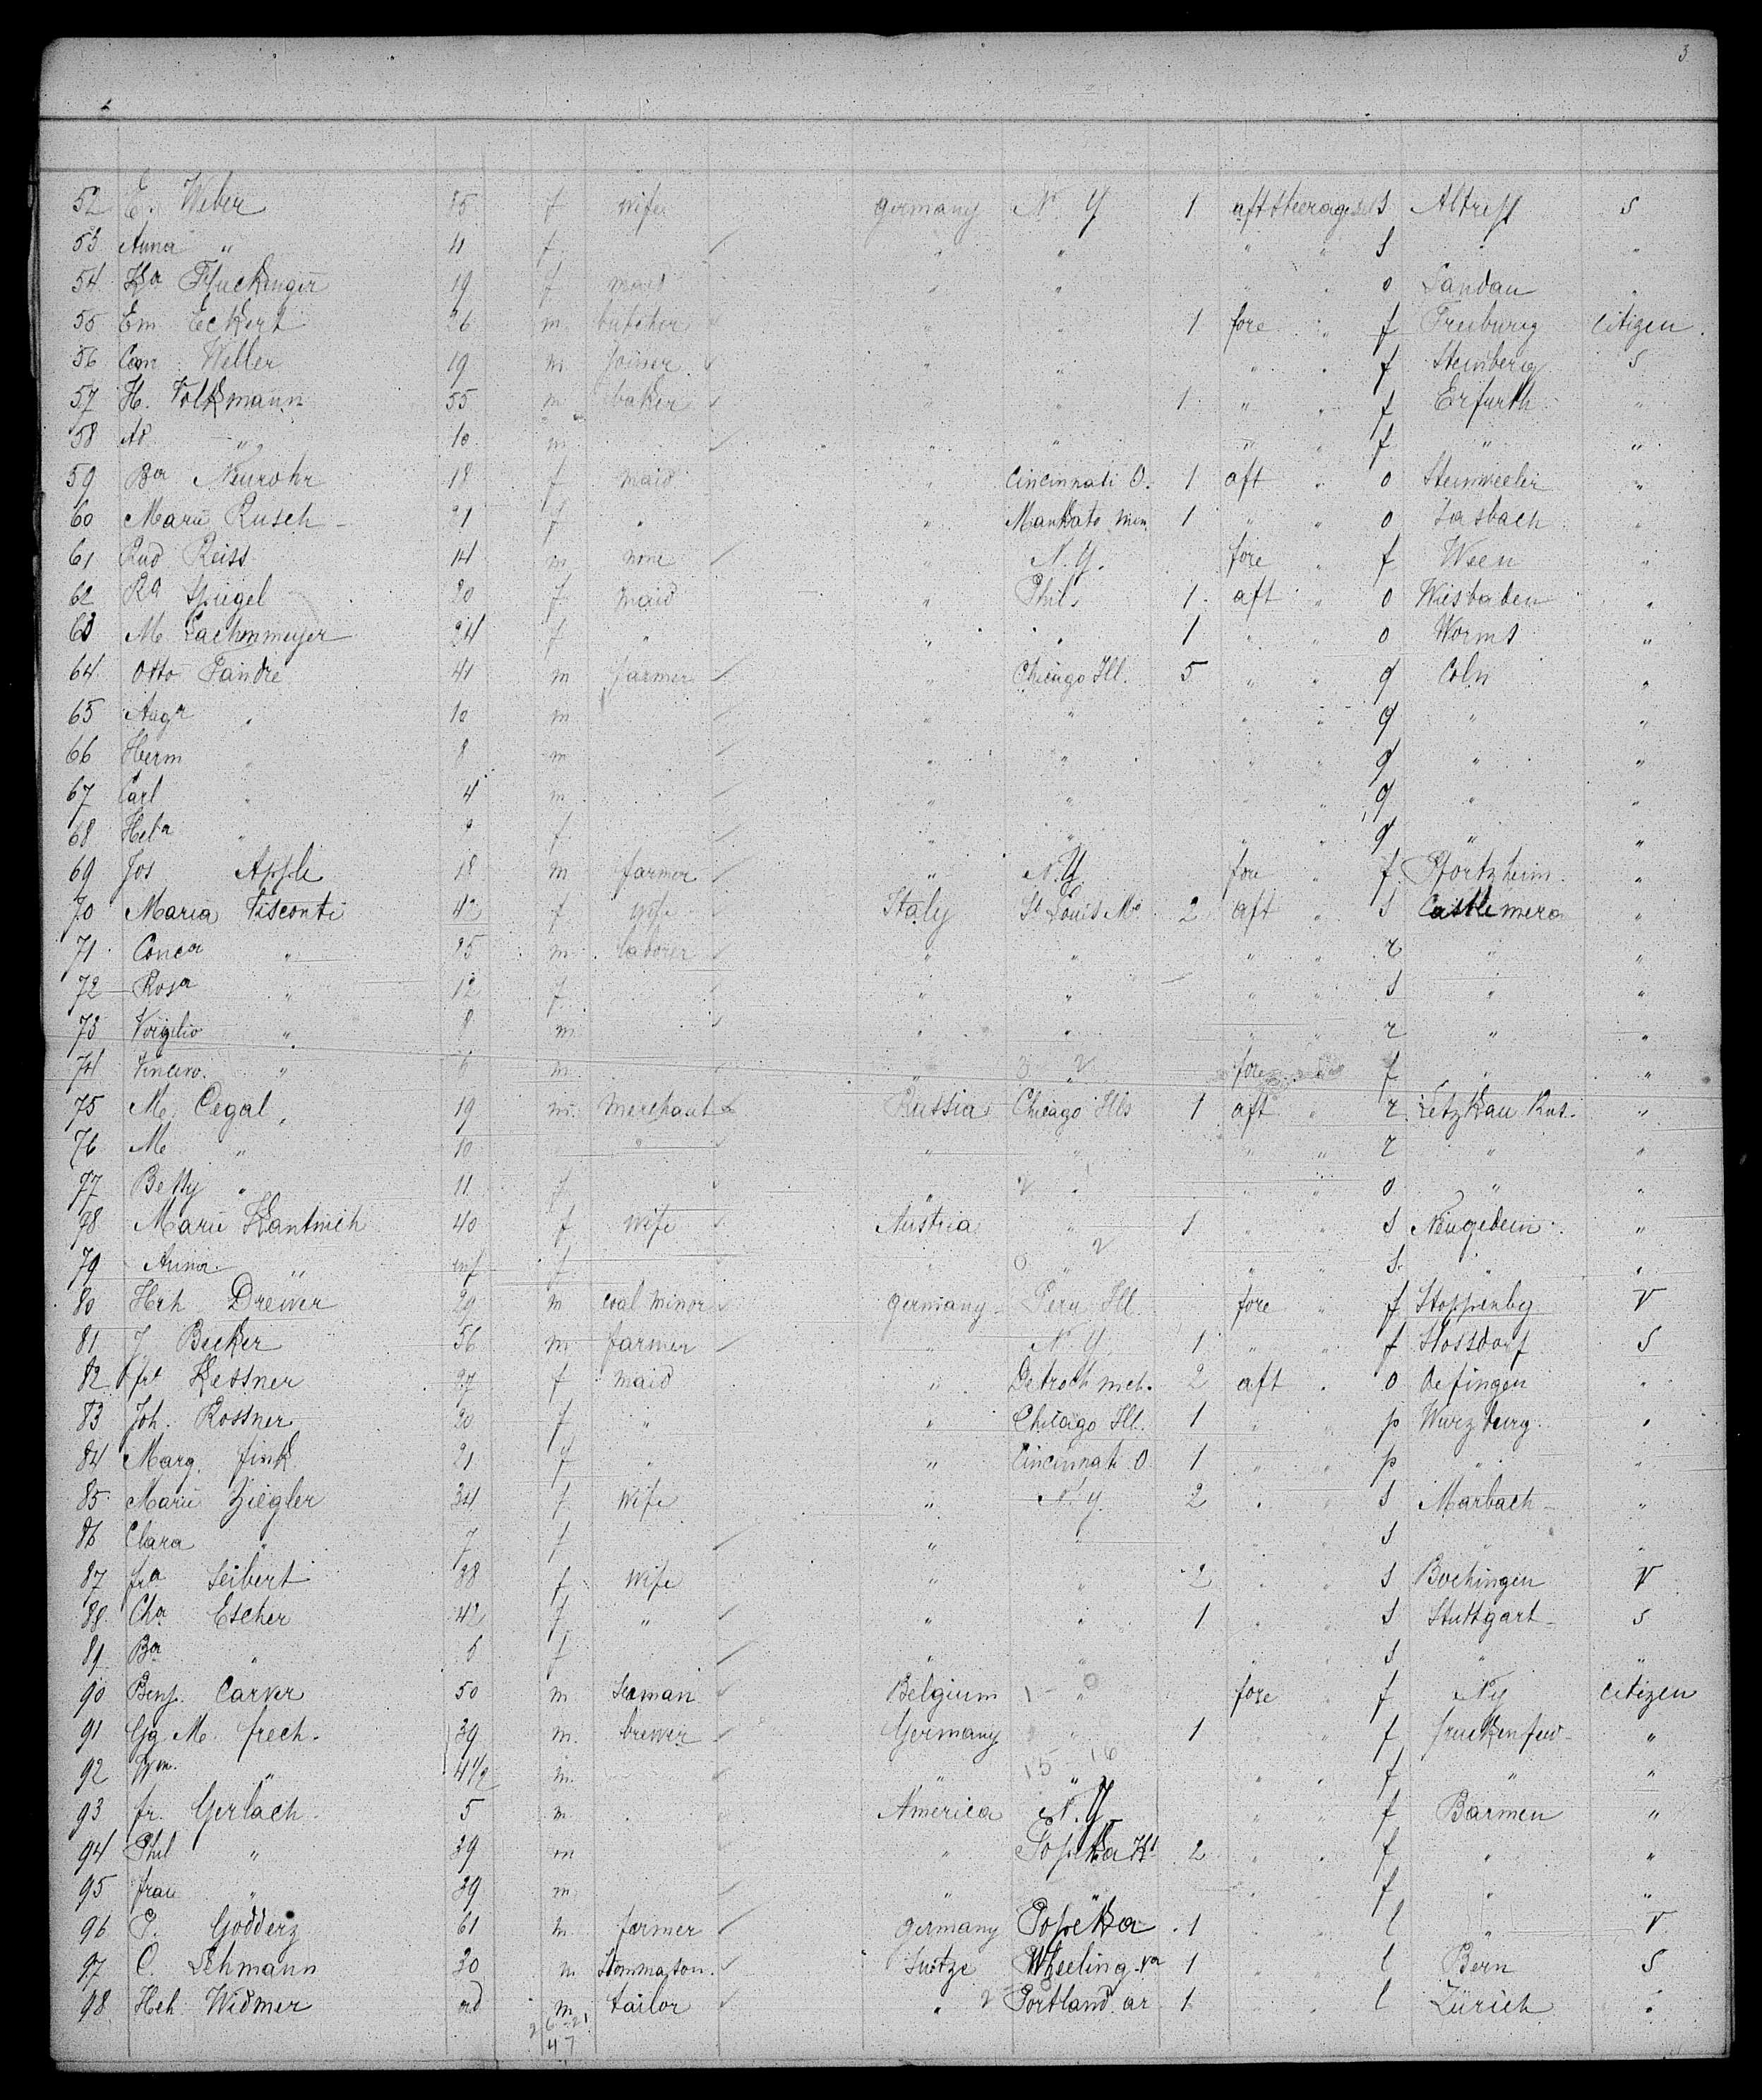 3
52 E. Weber 35 f wife germany N. Y 1 aft steerage S s
53 Anna " 4 f " " " " S "
54 19 f maid " " " " o Landau "
55 Em Eckert 26 m butcher " " 1 fore " f Freiburg Citizen
56 Weller 19 m joiner " " " " f Steinberg S
57 H. Volkmann 55 m baker " " 1 " " f Erfurth "
58 Ad " 10 m " " " " f " "
59 Ba Neurohr 18 f maid " Cincinnati O. 1 aft " o Steinweeler "
60 Marie Rusch 21 f " " Mankato Min 1 " " o Sasbach "
61 Rud Reiss 14 m none " N. Y. fore " f Wien "
62 Ra Spiegel 20 f maid " Phil. 1 aft " o Wiesbaden "
63 M. Lachenmeyer 24 f " " " 1 " " o Worms "
64 Otto Fandre 41 m farmer " Chicago Ill. 5 " " q Coln "
65 " 10 m " " " " q " "
66 Herm " 8 m " " " " q " "
67 Carl " 4 m " " " " q " "
68 Hela " 9 f " " " " q " "
69 Jos Apple 18 m farmer " N. Y fore " f Pfortzheim "
70 Maria Visconti 42 f wife Italy St Louis Mo 2 aft " S "
71 " 25 m laborer " " " " r " "
72 Rosa " 12 f " " " " S " "
73 Virgilio " 8 m " " " " r " "
74 " 6 m " 2 fore " f " "
75 M. Cegal 19 m merchant Russia Chicago Ills 1 aft " r Letzkau Rus. "
76 M " 10 " " " " r " "
77 Betty " 11 f " 2 " " " o " "
78 Marie 40 f wife Austria " 1 " " S Neugedein "
79 Anna " inf f " 0 " 2 " " S " "
80 Hch Drewer 29 m coal minor germany Peru Ill. fore " f Stoppenbg V
81 J Becker 56 m farmer " N. Y 1 " " f Stossdorf S
82 Kessner 27 f maid " Detroit mch. 2 aft " o Oefingen "
83 Joh. Rossner 20 f " " Chicago Ill. 1 " " p Wurzburg "
84 Marg. Fink 21 f " " Cincinnati O 1 " " p " "
85 Marie Ziegler 34 f wife " N. Y. 2 " " S Marbach "
86 Clara " 7 f " " " " S " "
87 fra Seibert 38 f wife " " 2 " " S Bochingen V
88 Cha Escher 42 f " " " 1 " " S Stuttgart S
89 Ba " 5 f " " " " S " "
90 Benj. Carver 50 m Seaman Belgium 1 - 0 " fore " f NY Citizen
91 Gg M. frech. 39 m. brewer Germany " 1 " " f "
92 Wm. " 4 1/2 m. " 15 16 " " " f " "
93 fr. Gerlach 5 m America N. Y " " f Barmen "
94 Phil " 39 m " Topeka Ks 2 " " f " "
95 frau " 39 m " " " " f " "
96 P. Godderz 61 m farmer germany Topeka 1 " " l " V
97 C. Lehmann 30 m Stonmason Switze Wheeling Va 1 " " l Bern S
98 Hch Widmer m tailor " 2 Portland or 1 " " l Zürich "
47